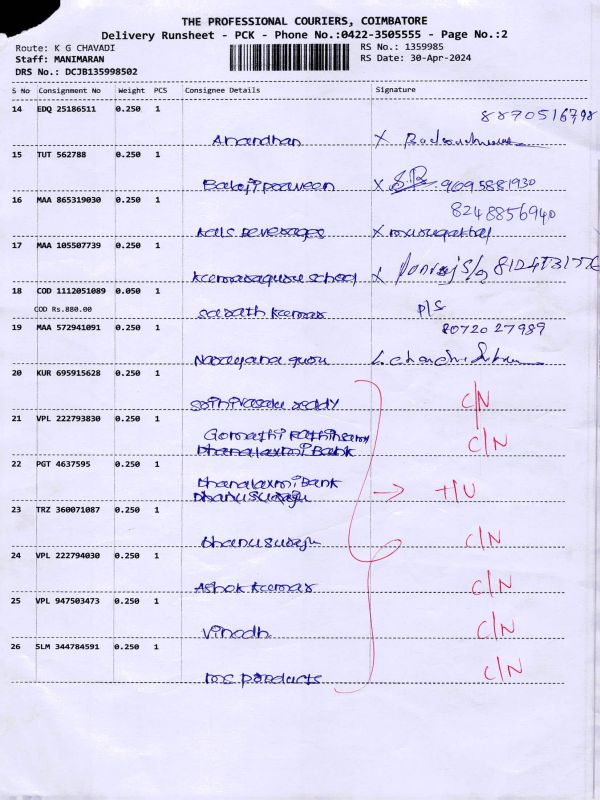 THE PROFESSIONAL COURIERS, COIMBATORE
Delivery Runsheet - PCK - Phone No.:0422-3505555 - Page No.:2
Route: K G CHAVADI RS No.: 1359985
Staff: MANIMARAN RS Date: 30-Apr-2024
DRS No.: DCJB135998502
S No Consignment No Weight PCS Consignee Details Signature
14 EDQ 25186511 0.250 1 8870516798
Anandhan X
15 TUT 562788 0.250 1
Balaji praveen X 9095881930
16 MAA 865319030 0.250 1 8248856940
kals beverages X
17 MAA 105507739 0.250 1
kumaraguru school X
18 COD 1112051089 0.050 1
COD Rs.880.00 sarath kumar P/S
19 MAA 572941091 0.250 1 8072027989
Narayana guru
20 KUR 695915628 0.250 1
reddy C/N
21 VPL 222793830 0.250 1
Gomathi Rathinasamy C/N
Dhanalaxmi Bank
22 PGT 4637595 0.250 1
Dhanalaxmi Bank
→
23 TRZ 360071087 0.250 1
C/N
24 VPL 222794030 0.250 1
Ashok kumar C/N
25 VPL 947503473 0.250 1
Vinodh C/N
26 SLM 344784591 0.250 1
products C/N